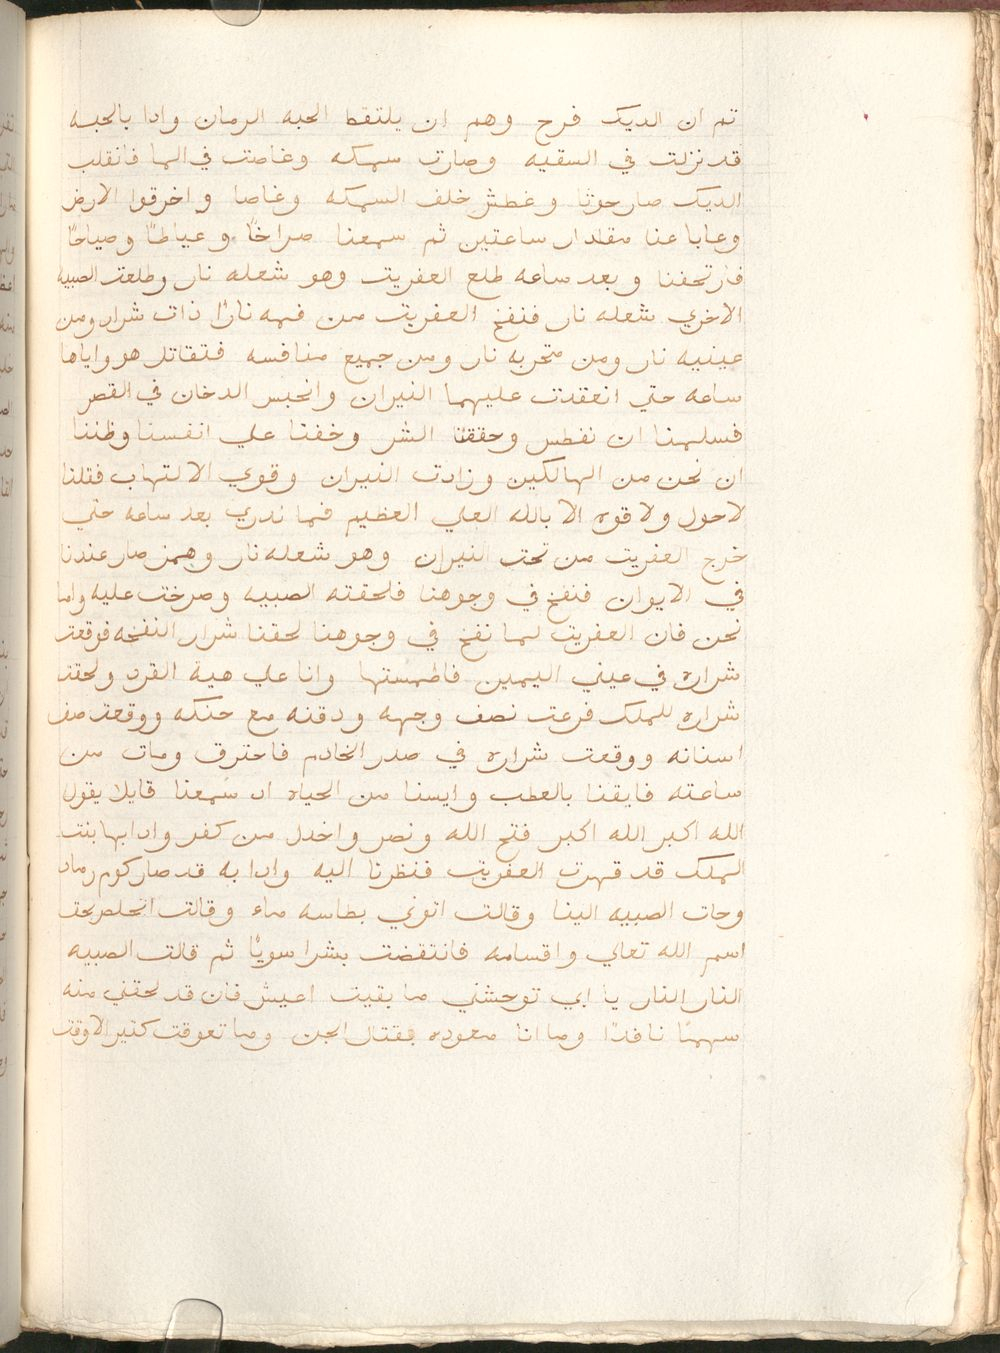 تم ان الديك فرح وهم ان يلتقط الحبه الرمان وادا بالحبه
قد نزلت في السقيه وصارت سمكه وغاصت في الما فانقلب
الديك صار حوتا وغطس خلف السمكه وغاصا واخرقوا الارض
وغابا عنا مقدار ساعتين ثم سمعنا صراخًا وعياطًا وصياحًا
فارتجفنا وبعد ساعه طلع العفريت وهو شعله نار وطلعت الصبيه
الاخري شعله نار فنفخ العفريت من فمه نارًا ذات شرار ومن
عينيه نار ومن منخريه نار ومن جميع منافسه فتقاتل هو واياها
ساعه حتي انعقدت عليهما النيران وانحبس الدخان في القصر
فسلمنا ان نفطس وحققنا الشر وخفنا علي انفسنا وظننا
ان نحن من الهالكين وزادت النيران وقوي الالتهاب فقلنا
لاحول ولا قوه الا بالله العلي العظيم فما ندري بعد ساعه حتي
خرج العفريت من تحت النيران وهو شعله نار وهمز صار عندنا
في الايوان فنفخ في وجوهنا فلحقته الصبيه وصرخت عليه واما
نحن فان العفريت لما نفخ في وجوهنا لحقنا شرار النفخه فوقعت
شراره في عيني اليمين فاطمستها وانا علي هية القرد ولحقت
شراره للملك فرعت نصف وجهه ودقنه مع حنكه ووقعت صف
اسنانه ووقعت شراره في صدر الخادم فاحترق ومات من
ساعته فايقنا بالعطب وايسنا من الحياه اد سمعنا قايلا يقول
الله اكبر الله اكبر فتح الله ونصر واخدل من كفر وادا بها بنت
الملك قد قهرت العفريت فنظرنا اليه وادا به قد صار كوم رماد
وجات الصبيه الينا وقالت اتوني بطاسه ماء وقالت اتخلص بحق
اسم الله تعالي واقسامه فانتقضت بشرا سويًا ثم قالت الصبيه
النار النار يا ابي توحشني ما بقيت اعيش فان قد لحقني منه
سهمًا نافدًا وما انا معوده بقتال الجن وما تعوقت كتير الا وقت